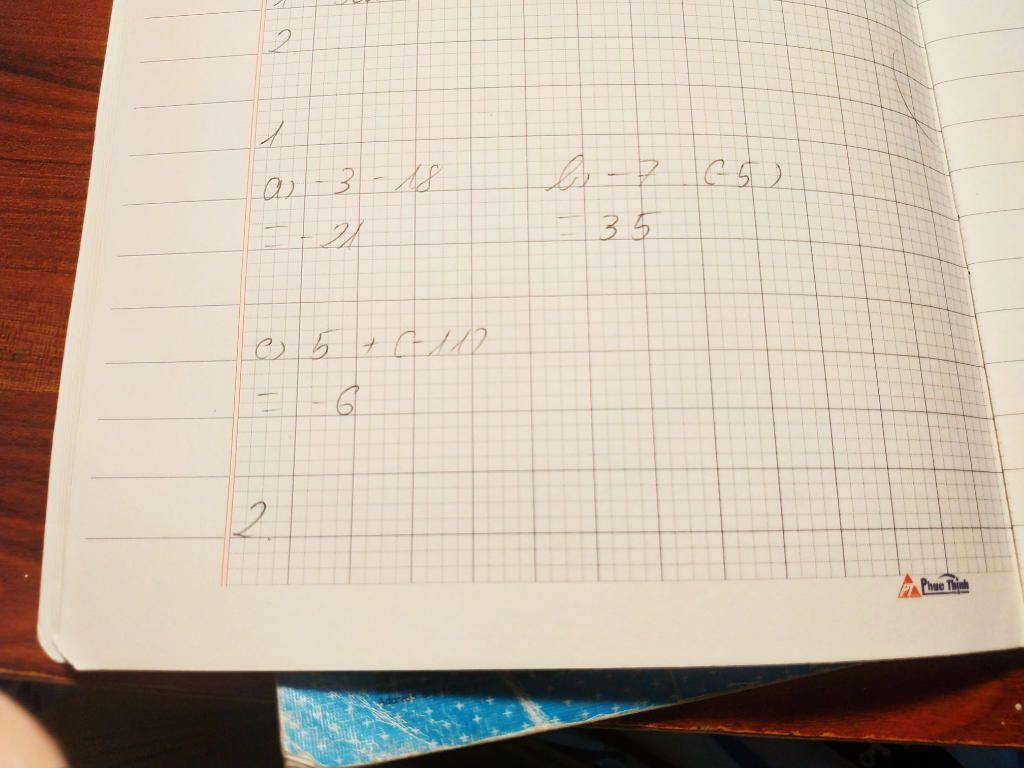 2
1
a) -3 - 18
b) -7 . (-5)
= -21
= 35
c) 5 + (-11)
= -6
2.
PT Phuc Thinh